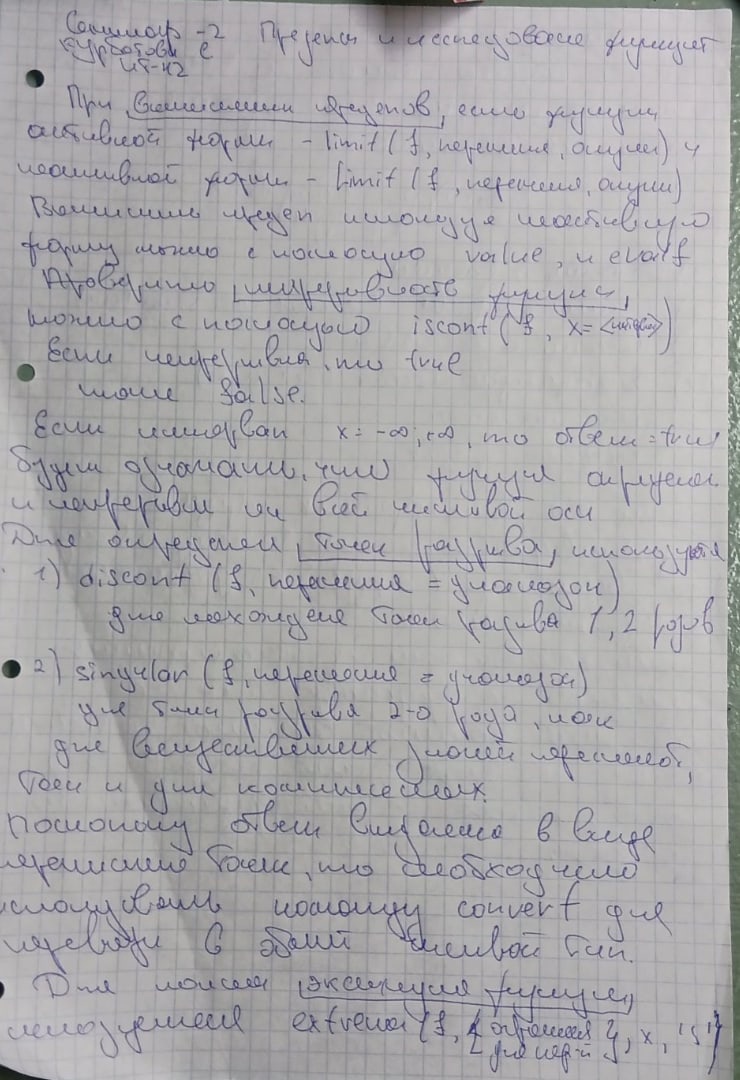 Семинар - 2 Пределы и исследование функций
ИТ-42
При вычислении пределов, есть функции
активной формы - limit (f, переменная, опции) и
неактивной формы - Limit (f, переменная, опции)
Вычислить предел используя неактивную
форму можно с помощью value, и evalf
Проверить непрерывность функции,
можно с помощью iscont (f, x = <интервал>)
Если непрерывна, то true
иначе false.
Если интервал x = -∞; +∞, то ответ = true
будет означать, что функция определена
и непрерывна на всей числовой оси
Для определения точек разрыва, используются
1) discont (f, переменная = диапазон)
для нахождения точек разрыва 1, 2 родов
2) singular (f, переменная = диапазон)
для точек разрыва 2-о рода, как
для вещественных значений переменной,
так и для комплексных.
Поскольку ответ в виде
перечисления точек, то необходимо
использовать команду convert для
перевода в числовой тип.
Для поиска экстремума функции,
используется extrema (f, { }, x, 's')